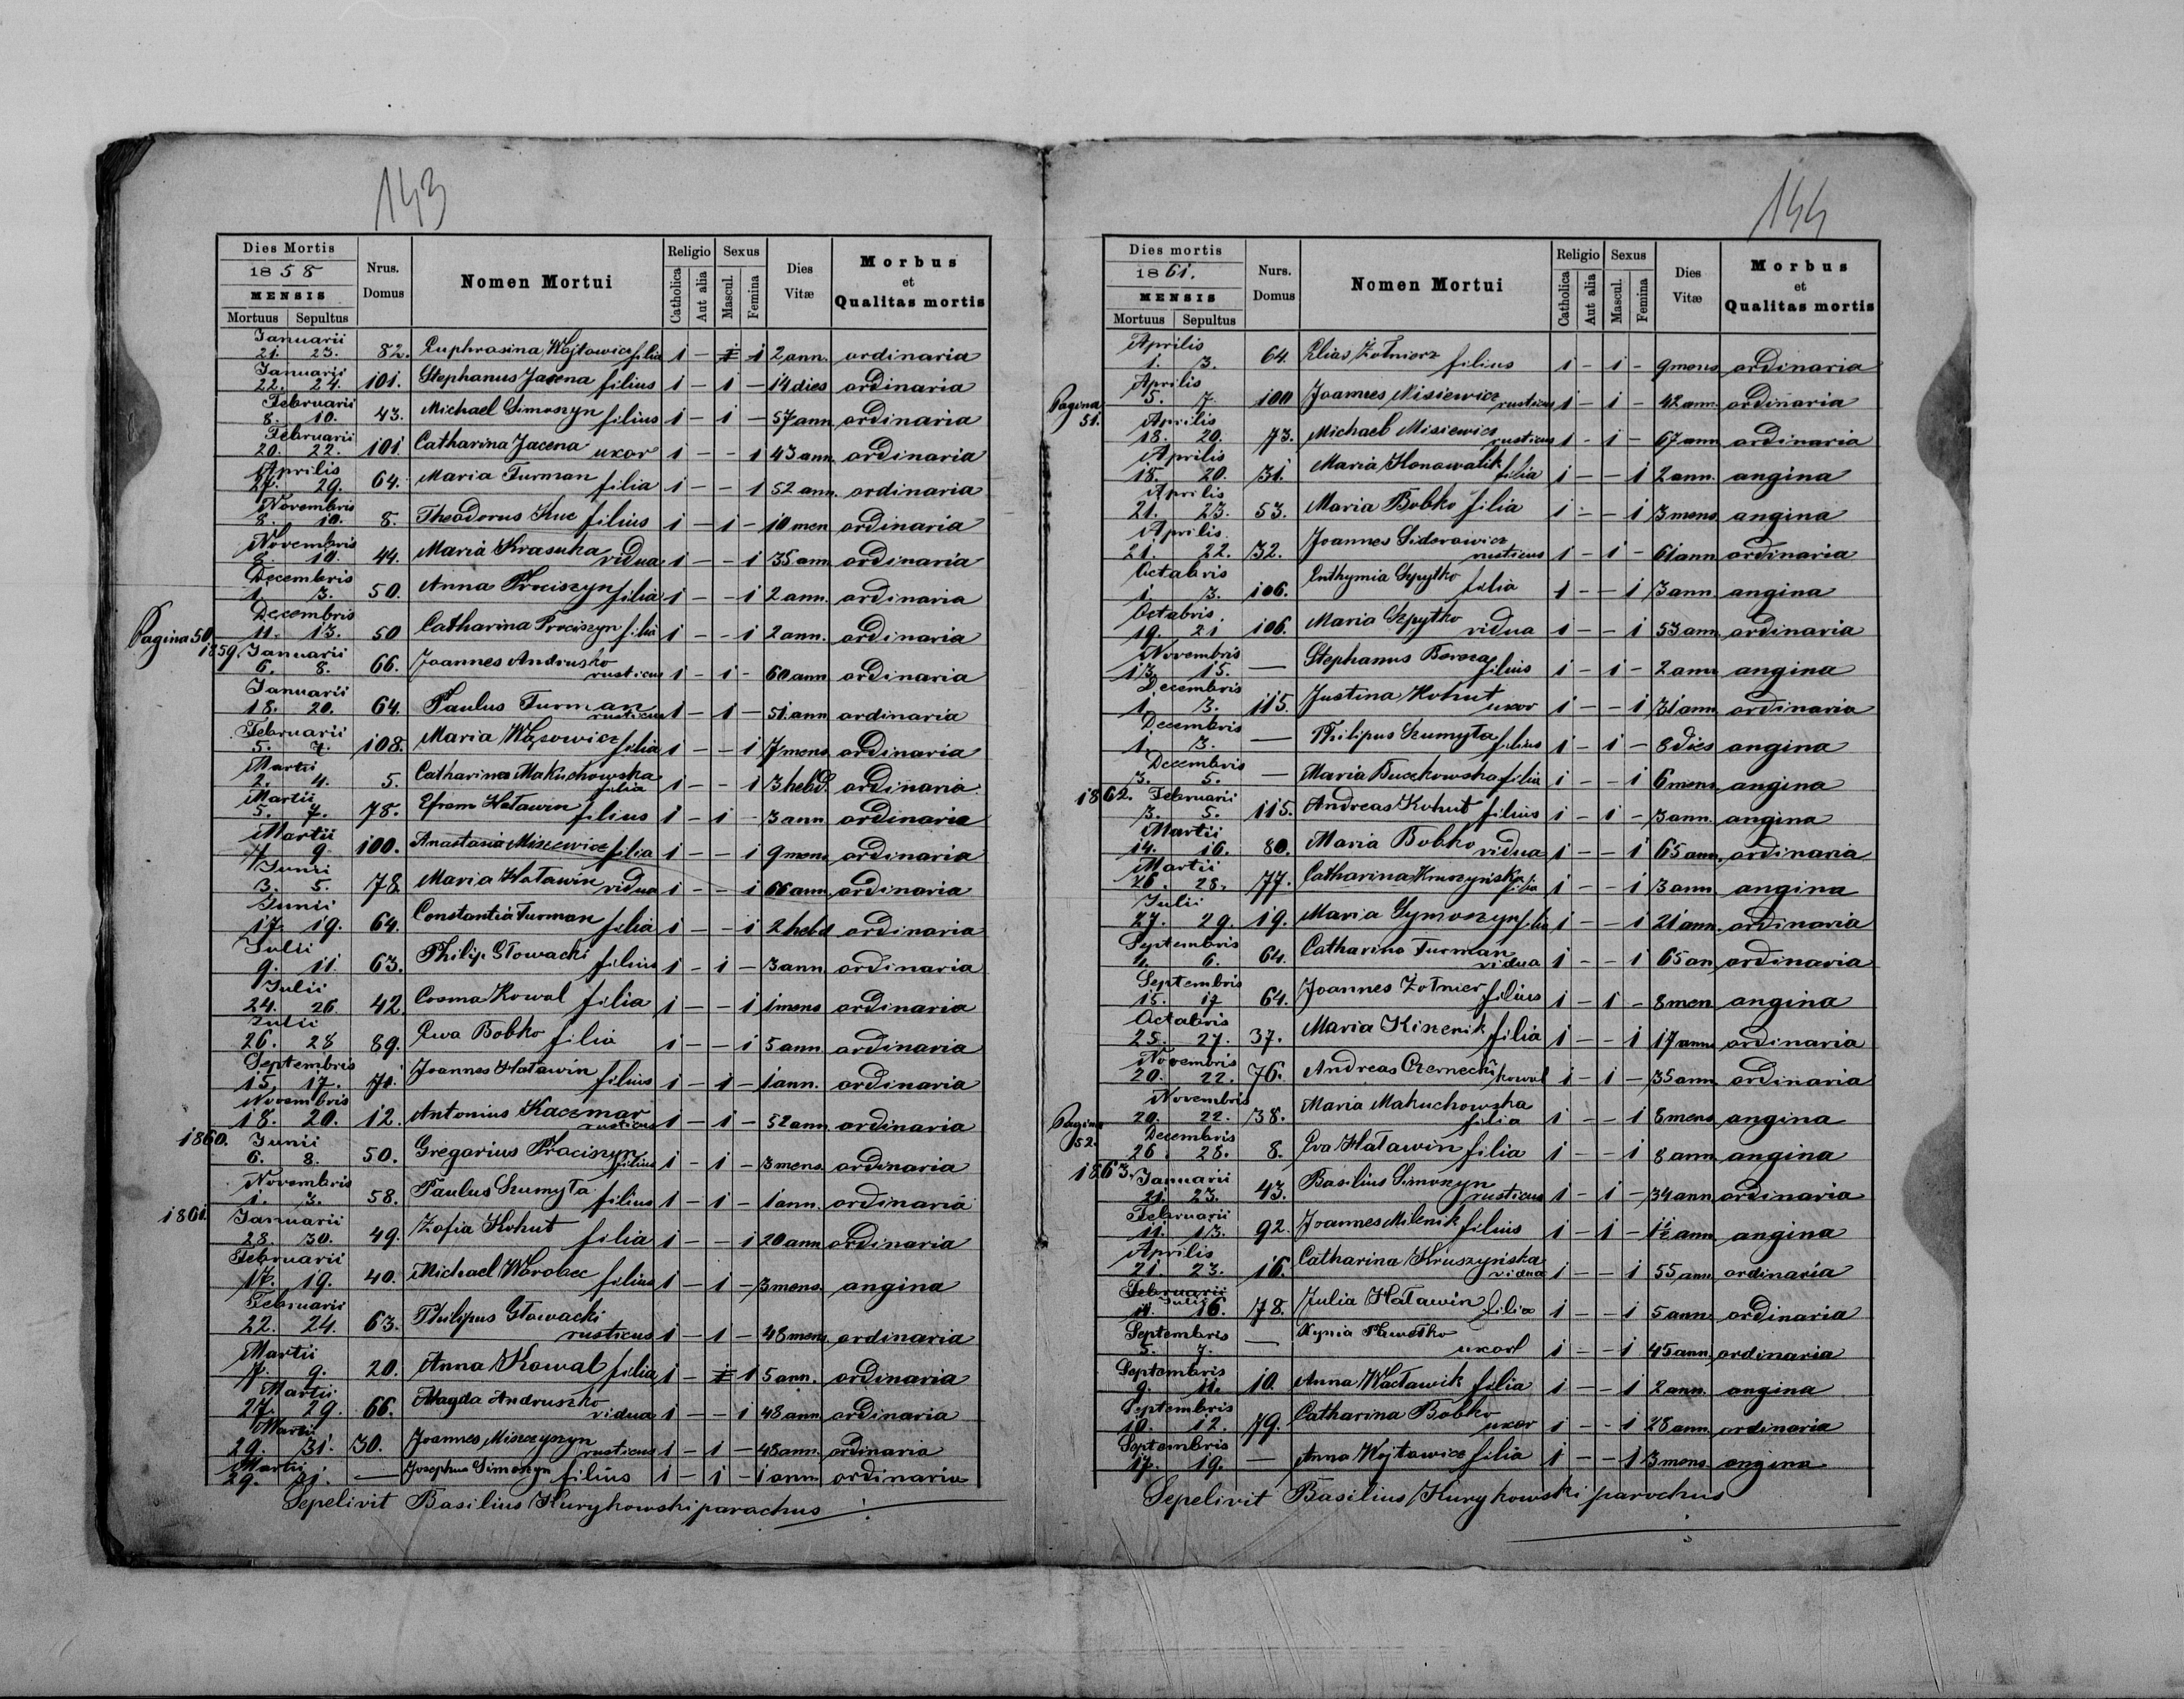 143
Dies Mortis
1858
MENSIS
Mortuus Sepultus
Nrus. Domus
Nomen Mortui
Religio
Catholica
Aut alia
Sexus
Mascul.
Femina
Dies Vitæ
Morbus et Qualitas mortis
Januarii 21. 23. 82. Euphrosina Wojtowicz filia 1 - 1 1 2 ann. ordinaria
Januarii 22. 24. 101. Stephanus Jacena filius 1 - 1 - 14 dies ordinaria
Februarii 8. 10. 43. Michael Simoszyn filius 1 - 1 - 57 ann ordinaria
Februarii 20. 22. 101 Catharina Jacena uxor 1 - - 1 43 ann. ordinaria
Aprilis 27. 29. 64. Maria Furman filia 1 - - 1 52 ann. ordinaria
Novembris 8. 10. 8. Theodorus Kuc filius 1 - 1 - 10 men ordinaria
Novembris 8. 10. 44. Maria Krasucka vidua 1 - - 1 35 ann ordinaria
Decembris 1. 3. 50. Anna Prociszyn filia 1 - - 1 2 ann. ordinaria
Pagina 50.
Decembris 11. 13. 50 Catharina Prociszyn filia 1 - - 1 2 ann. ordinaria
1859. Januarii 6. 8. 66. Joannes Andrusko rusticus 1 - 1 - 60 ann ordinaria
Januarii 18. 20. 64. Paulus Furman rusticus 1 - 1 - 51. ann ordinaria
Februarii 5. 7. 108. Maria Wąsowicz filia 1 - - 1 7 mens ordinaria
Martii 2. 4. 5. Catharina Makuchowska filia 1 - - 1 3 hebd. ordinaria
Martii 5. 7. 78. Efrem Hatawin filius 1 - 1 - 3 ann ordinaria
Martii 7. 9. 100. Anastasia Misiewicz filia 1 - - 1 9 mens ordinaria
Junii 3. 5. 78. Maria Hatawin vidua 1 - - 1 66 ann ordinaria
Junii 17. 19. 64. Constantia Furman filia 1 - - 1 2 hebd ordinaria
Julii 9. 11. 63. Philip Głowacki filius 1 - 1 - 3 ann ordinaria
Julii 24. 26. 42. Cosma Kowal filia 1 - - 1 1 mens ordinaria
Julii 26. 28 89. Ewa Bobko filia 1 - - 1 5 ann. ordinaria
Septembris 15. 17. 71. Joannes Hatawin filius 1 - 1 - 1 ann. ordinaria
Novembris 18. 20. 12. Antonius Kaczmar rusticus 1 - 1 - 52 ann. ordinaria
1860. Junii 6. 8. 50. Gregorius Prociszyn filius 1 - 1 - 3 mens. ordinaria
Novembris 1. 3. 58. Paulus Szumyta filius 1 - 1 - 1 ann. ordinaria
1861. Januarii 28. 30. 49. Zofia Kohut filia 1 - - 1 20 ann ordinaria
Februarii 17. 19. 40. Michael Worobec filius 1 - 1 - 3 mens. angina
Februarii 22. 24. 63. Philipus Głowacki rusticus 1 - 1 - 48 mens. ordinaria
Martii 7. 9. 20. Anna Kowal filia 1 - 1 1 5 ann. ordinaria
Martii 27. 29. 66. Magda Andruszko vidua 1 - - 1 48 ann ordinaria
Martii 29. 31. 30. Joannes Misczyszyn rusticus 1 - 1 - 48 ann. ordinaria
Martii 29. 31. — Josephus Simoszyn filius 1 - 1 - 1 ann. ordinaria
Sepelivit Basilius Kurykowski parachus
144
Dies mortis
1861.
MENSIS
Mortuus Sepultus
Nurs. Domus
Nomen Mortui
Religio
Catholica
Aut alia
Sexus
Mascul.
Femina
Dies Vitæ
Morbus et Qualitas mortis
Aprilis 1. 3. 64. Elias Żołnierz filius 1 - 1 - 9 mens ordinaria
Pagina 51.
Aprilis 5. 7. 100 Joannes Misiewicz rusticus 1 - 1 - 42 ann. ordinaria
Aprilis 18. 20. 73. Michael Misiewicz rusticus 1 - 1 - 67 ann ordinaria
Aprilis 18. 20. 31. Maria Konowalik filia 1 - - 1 2 ann. angina
Aprilis 21. 23. 53. Maria Bobko filia 1 - - 1 3 mens angina
Aprilis 21. 22. 32. Joannes Sidorowicz rusticus 1 - 1 - 61 ann ordinaria
Octabris 1. 3. 106. Enthymia Szpytko filia 1 - - 1 3 ann angina
Octabris 19. 21 106. Maria Szpytko vidua 1 - - 1 53 ann. ordinaria
Novembris 13. 15. — Stephanus filius 1 - 1 - 2 ann angina
Decembris 1. 3. 115. Justina Kohut uxor 1 - - 1 31 ann. ordinaria
Decembris 1. 3. — Philipus Szumyta filius 1 - 1 - 8 dies angina
Decembris 3. 5. — Maria Buczkowska filia 1 - - 1 6 mens. angina
1862. Februarii 3. 5. 115. Andreas Kohut filius 1 - 1 - 3 ann. angina
Martii 14. 16. 80. Maria Bobko vidua 1 - - 1 65 ann. ordinaria
Martii 26. 28. 77. Catharina Kruszyńska filia 1 - - 1 3 ann angina
Julii 27. 29. 19. Maria Symoszyn filia 1 - - 1 21 ann. ordinaria
Septembris 4. 6. 64. Catharina Furman vidua 1 - - 1 65 an ordinaria
Septembris 15. 17 64. Joannes Żołnier filius 1 - 1 - 8 men angina
Octabris 25. 27. 37. Maria Kiszenik filia 1 - - 1 17 ann ordinaria
Novembris 20. 22. 76. Andreas Czernecki kowal 1 - 1 - 35 ann ordinaria
Novembris 20. 22. 38. Maria Makuchowska filia 1 - - 1 8 mens angina
Pagina 52.
Decembris 26. 28. 8. Eva Hatawin filia 1 - - 1 8 ann angina
1863. Januarii 21. 23. 43. Basilius Simoszyn rusticus 1 - 1 - 34 ann ordinaria
Februarii 11. 13. 92. Joannes Milenik filius 1 - 1 - 1½ ann angina
Aprilis 21. 23. 16. Catharina Kruszyńska vidua 1 - - 1 55 ann ordinaria
Februarii Julii 16. 78. Julia Hatawin filia 1 - - 1 5 ann ordinaria
Septembris 5. 7. — Xynia Pawełko uxor 1 - - 1 45 ann. ordinaria
Septembris 9. 11. 10. Anna Wacławik filia 1 - - 1 2 ann. angina
Septembris 10. 12. 79. Catharina Bobko uxor 1 - - 1 28 ann ordinaria
Septembris 17. 19. — Anna Wojtowicz filia 1 - - 1 3 mens angina
Sepelivit Basilius Kurykowski parochus